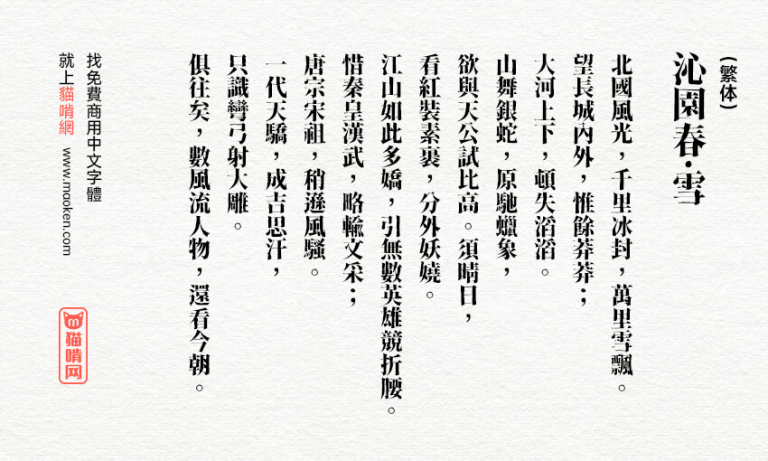 (繁体)
沁園春·雪
北國風光，千里冰封，萬里雪飄。
望長城內外，惟餘莽莽；
大河上下，頓失滔滔。
山舞銀蛇，原馳蠟象，
欲與天公試比高。須晴日，
看紅裝素裹，分外妖嬈。
江山如此多嬌，引無數英雄競折腰。
惜秦皇漢武，略輸文采；
唐宗宋祖，稍遜風騷。
一代天驕，成吉思汗，
只識彎弓射大雕。
俱往矣，數風流人物，還看今朝。
找免費商用中文字體
就上貓啃網 www.mooken.com
貓啃网